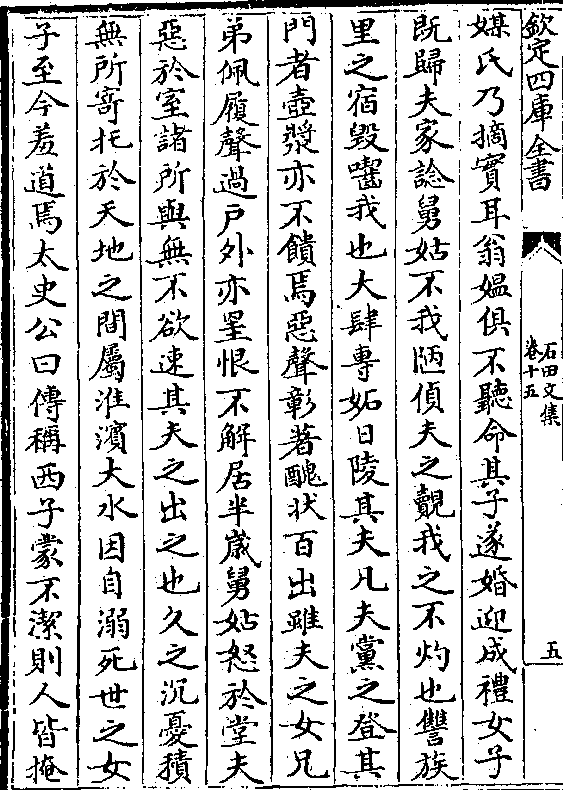 欽定四庫全書
石田文集
卷十五
五
媒氏乃摘實耳翁媪俱不聽命其子遂婚迎成禮女子
既歸夫家諗舅姑不我陋偵夫之覿我之不灼也讐族
里之宿毁囓我也大肆專妬日陵其夫凡夫黨之登其
門者壺漿亦不饋焉惡聲彰著醜状百出雖夫之女兄
弟佩履聲過户外亦詈恨不解居半嵗舅姑怒於堂夫
惡於室諸所與無不欲速其夫之出之也久之沉憂積
無所寄托於天地之間屬淮濵大水因自溺死世之女
子至今羞道焉太史公曰傳稱西子蒙不潔則人皆掩